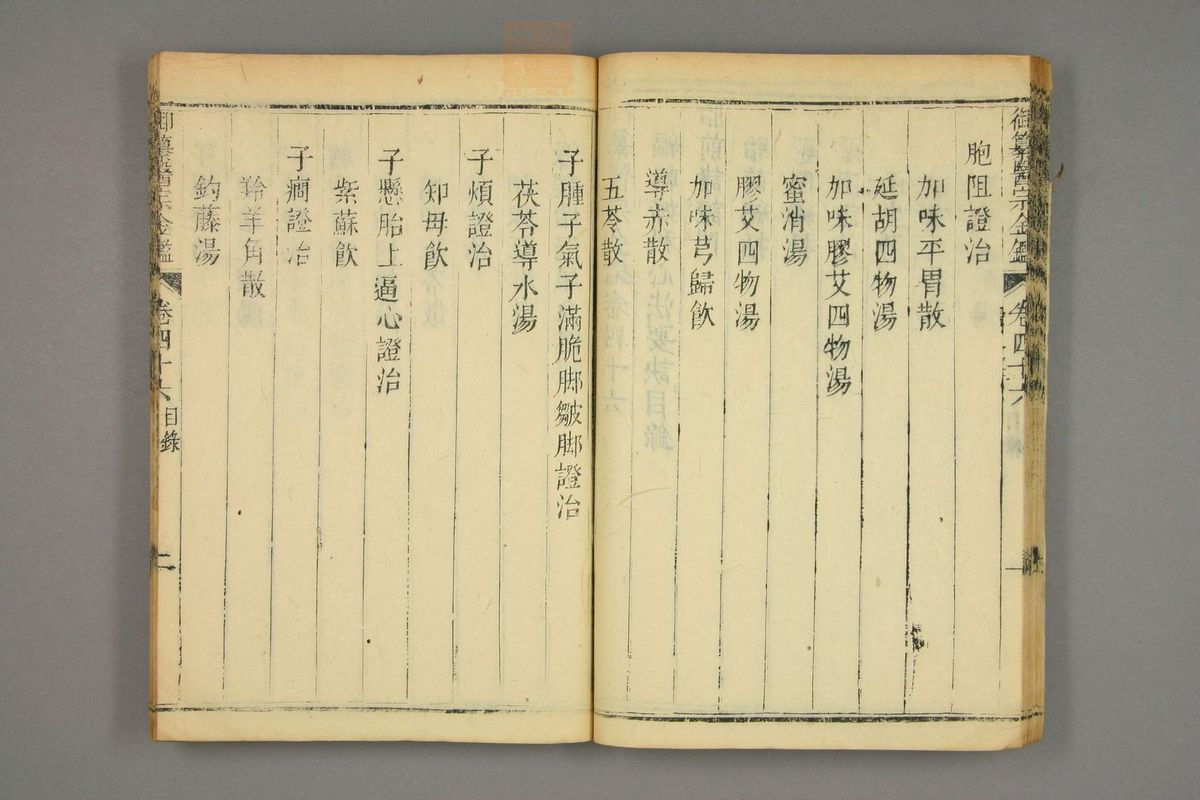 御纂醫宗金鑑 卷四十六
胞阻證治
加味平胃散
延胡四物湯
加味膠艾四物湯
蜜消湯
膠艾四物湯
加味芎歸飲
導赤散
五苓散
子腫子氣子滿脆脚皺脚證治
茯苓導水湯
子煩證治
知母飲
子懸胎上逼心證治
紫蘇飲
子癎證治
羚羊角散
鈎藤湯
御纂醫宗金鑑 卷四十六 目錄 二